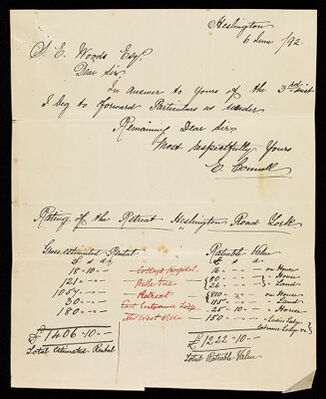 Heslington
6 June /92.
S. E. Woods Esq.
Dear Sir,
In Answer to yours of the 3rd inst
I beg to forward Particulars as under
Remaining Dear Sir
Most respectfully Yours
E.
Rating of the Retreat Heslington Road York
Gross estimated Rental Rateable Value
£ s d £ s d
18 - 10 - - Cottage Hospital 16 - - - on House
121 - - - Belle Vue 80 - - - House
26 - - - Land
1057 - - - Retreat 810 - - on House
115 - - Land
30 - - - East Entrance Lodge 25 - 10 - House
180 - - - The West Villa 150 - - - Ladies Lodge
Entrance Lodge &c
£1406 - 10 - - £1222 - 10 - -
Total Estimated Rental Total Rateable Value